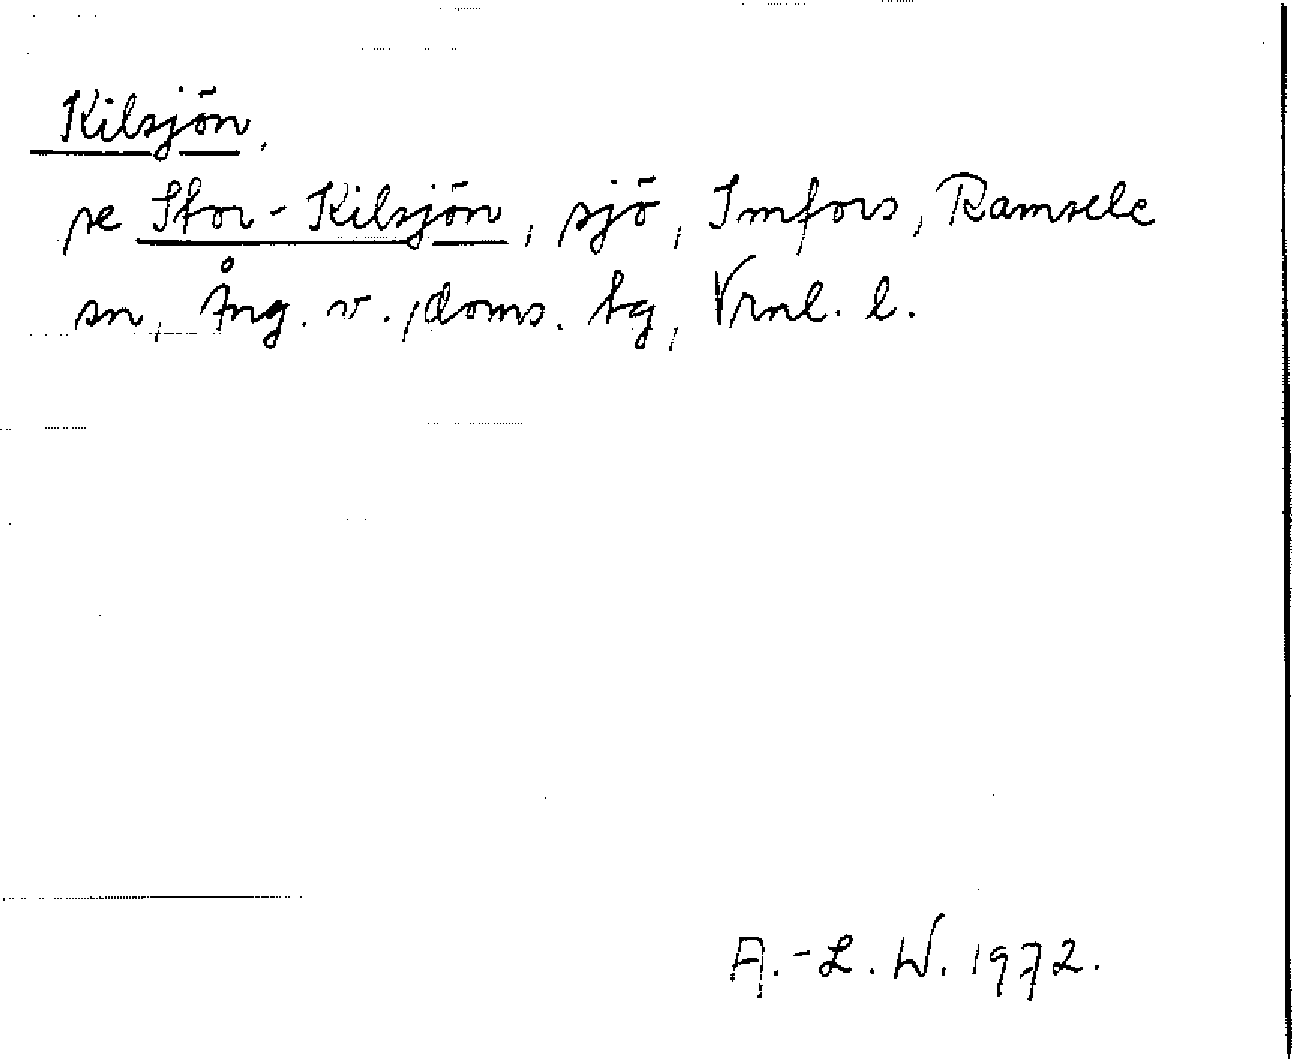 Kilsjön,
se Stor-Kilsjön, sjö, Imfors, Ramsele
sn, Ång. v. doms. tg, Vrnl. l.
A.-L. W. 1972.